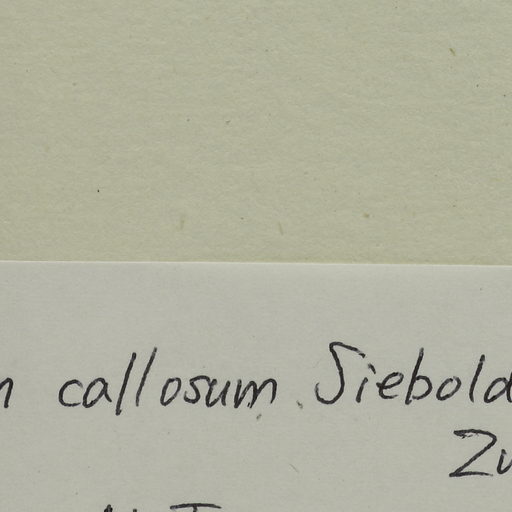 callosum Siebold
Zu